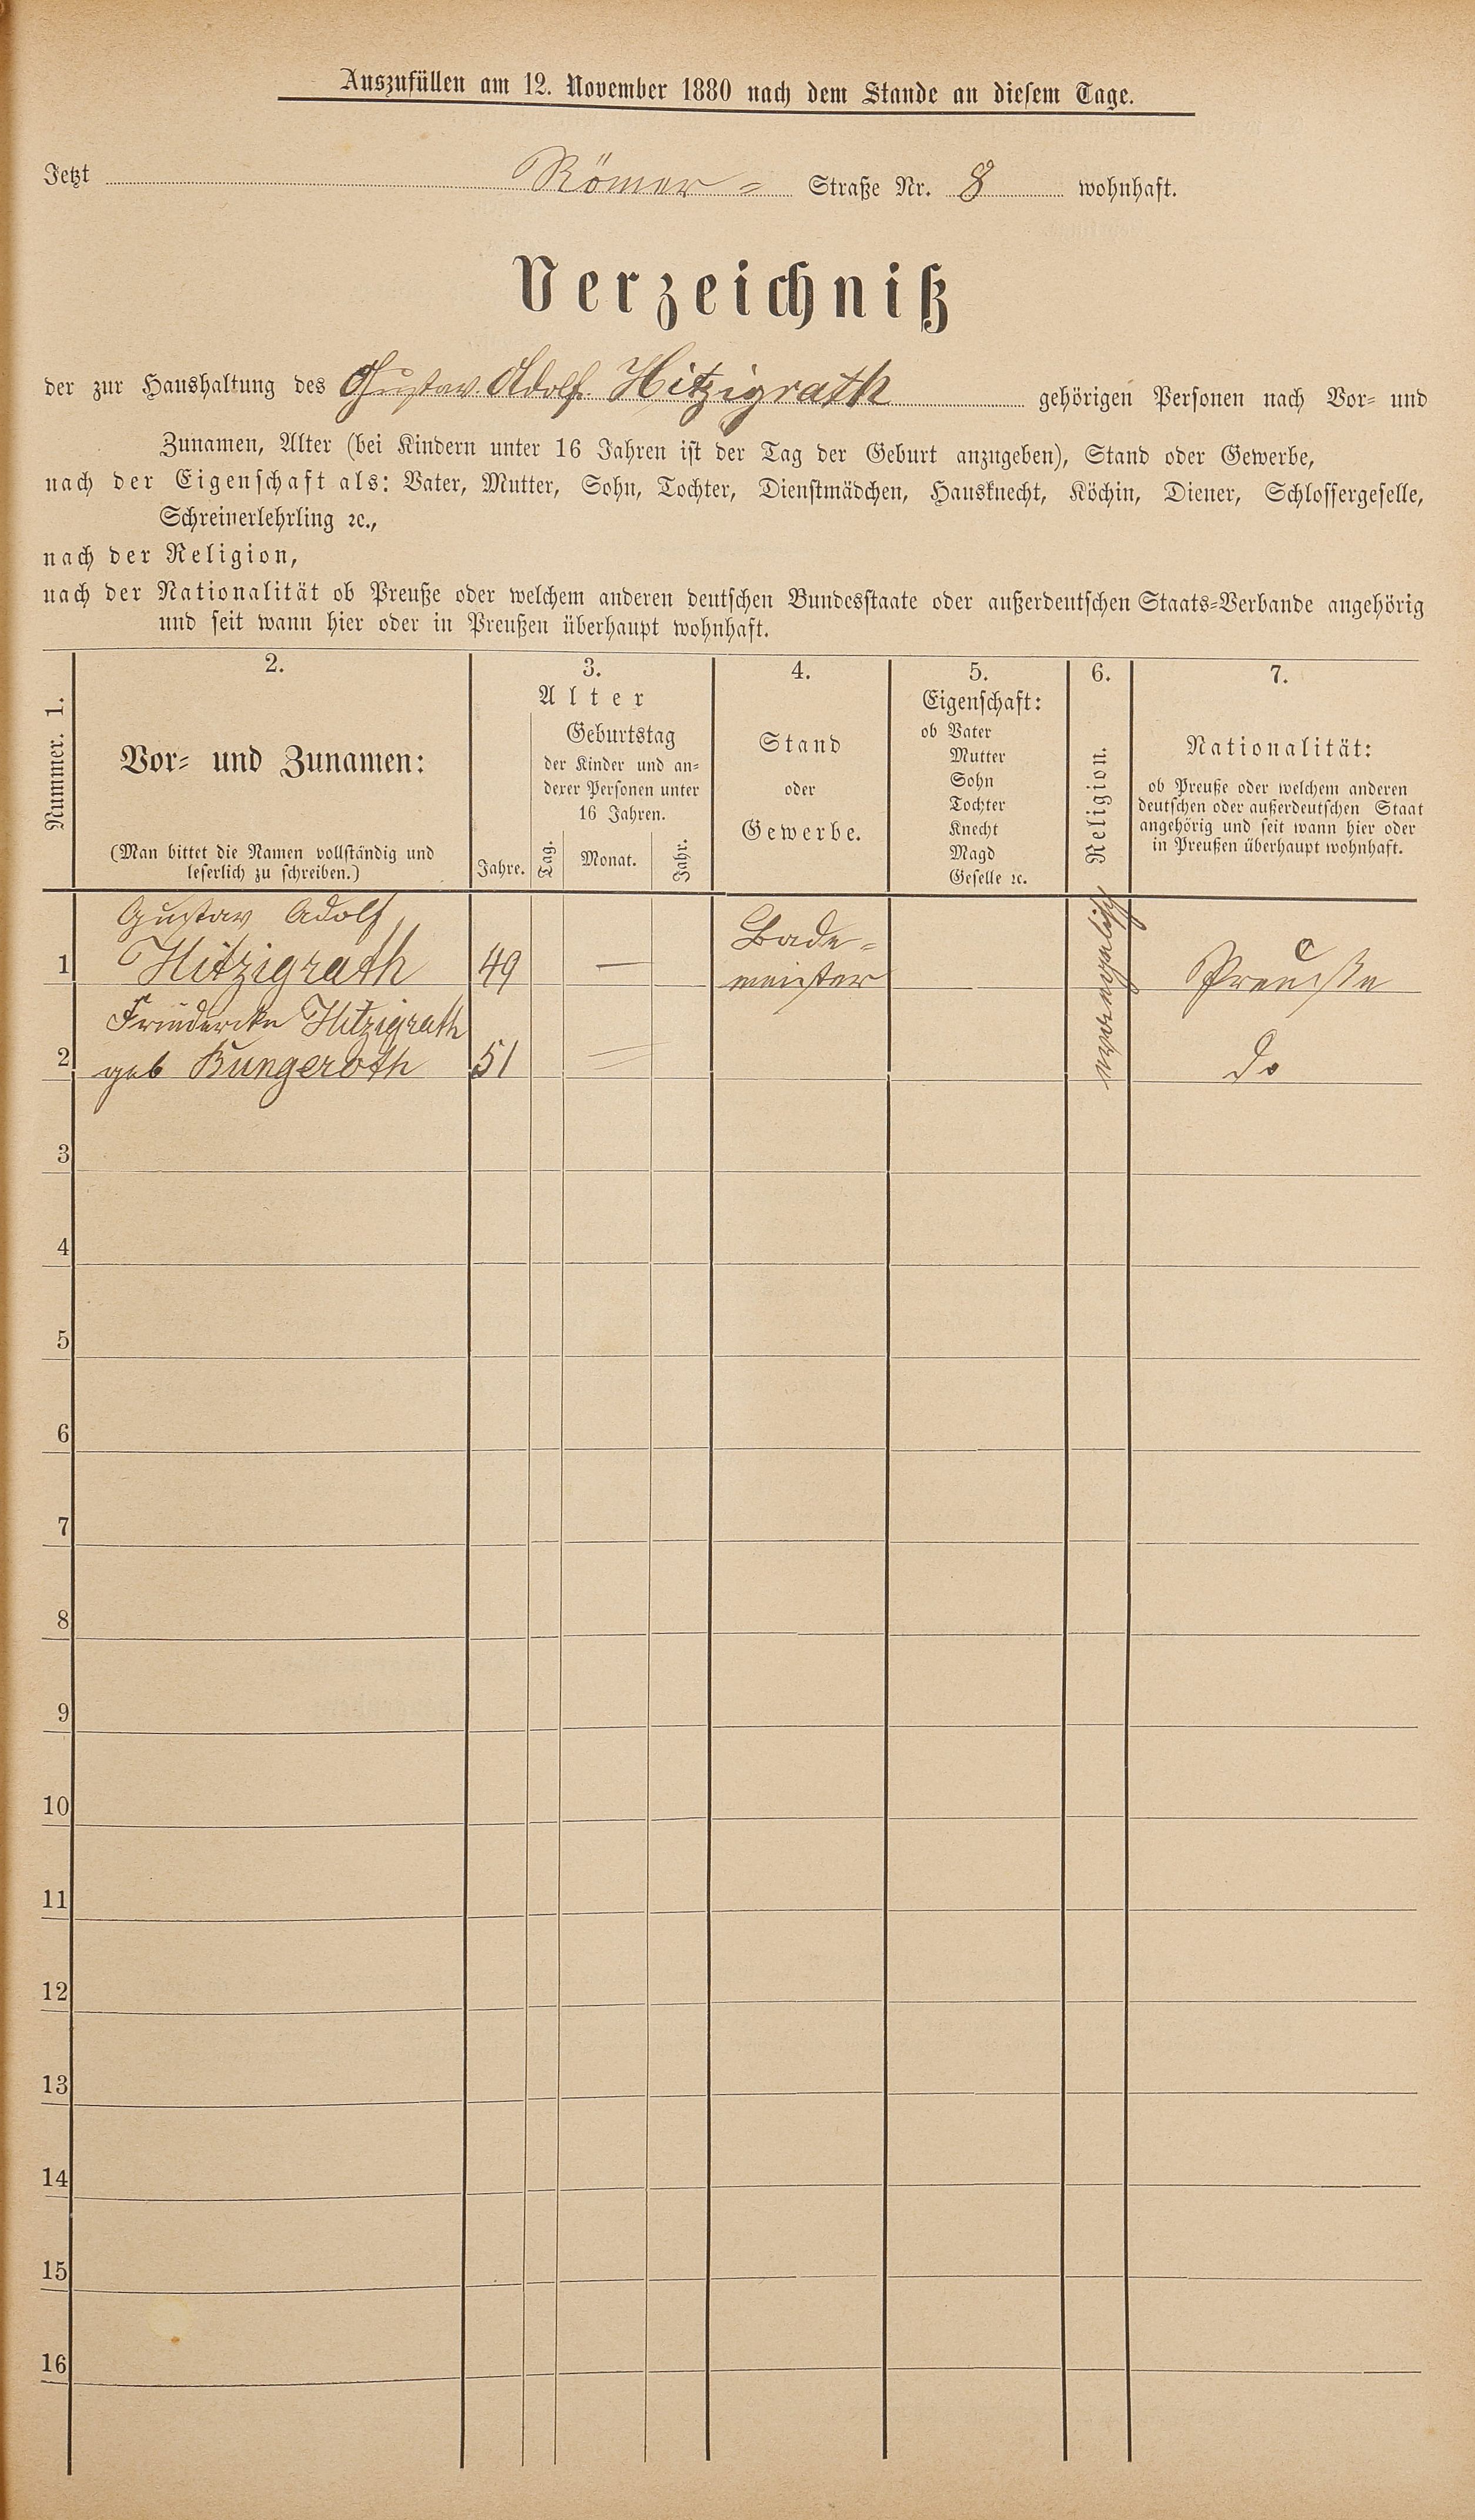 Auszufüllen am 12. November 1880 nach dem Stande an diesem Tage.
Jetzt Römer- Straße Nr. 8 wohnhaft.
Verzeichniß
der zur Haushaltung des Gustav Adolf Hitzigrath gehörigen Personen nach Vor- und
Zunamen, Alter (bei Kindern unter 16 Jahren ist der Tag der Geburt anzugeben), Stand oder Gewerbe,
nach der Eigenschaft als: Vater, Mutter, Sohn, Tochter, Dienstmädchen, Hausknecht, Köchin, Diener, Schlossergeselle,
Schreinerlehrling ꝛc.,
nach der Religion,
nach der Nationalität ob Preuße oder welchem anderen deutschen Bundesstaate oder außerdeutschen Staats-Verbande angehörig
und seit wann hier oder in Preußen überhaupt wohnhaft.
Nummer. 1.
2.
Vor- und Zunamen:
(Man bittet die Namen vollständig und
leserlich zu schreiben.)
3.
Alter
Jahre.
Geburtstag
der Kinder und an-
derer Personen unter
16 Jahren.
Tag.
Monat.
Jahr.
4.
Stand
oder
Gewerbe.
5.
Eigenschaft:
ob Vater
Mutter
Sohn
Tochter
Knecht
Magd
Geselle ꝛc.
6.
Religion.
7.
Nationalität:
ob Preuße oder welchem anderen
deutschen oder außerdeutschen Staat
angehörig und seit wann hier oder
in Preußen überhaupt wohnhaft.
Gustav Adolf Bade-
1 Hitzigrath 49 — meister Preuße
Friedericke Hitzigrath
2 geb Bungeroth 51 do
evangelisch
3
4
5
6
7
8
9
10
11
12
13
14
15
16